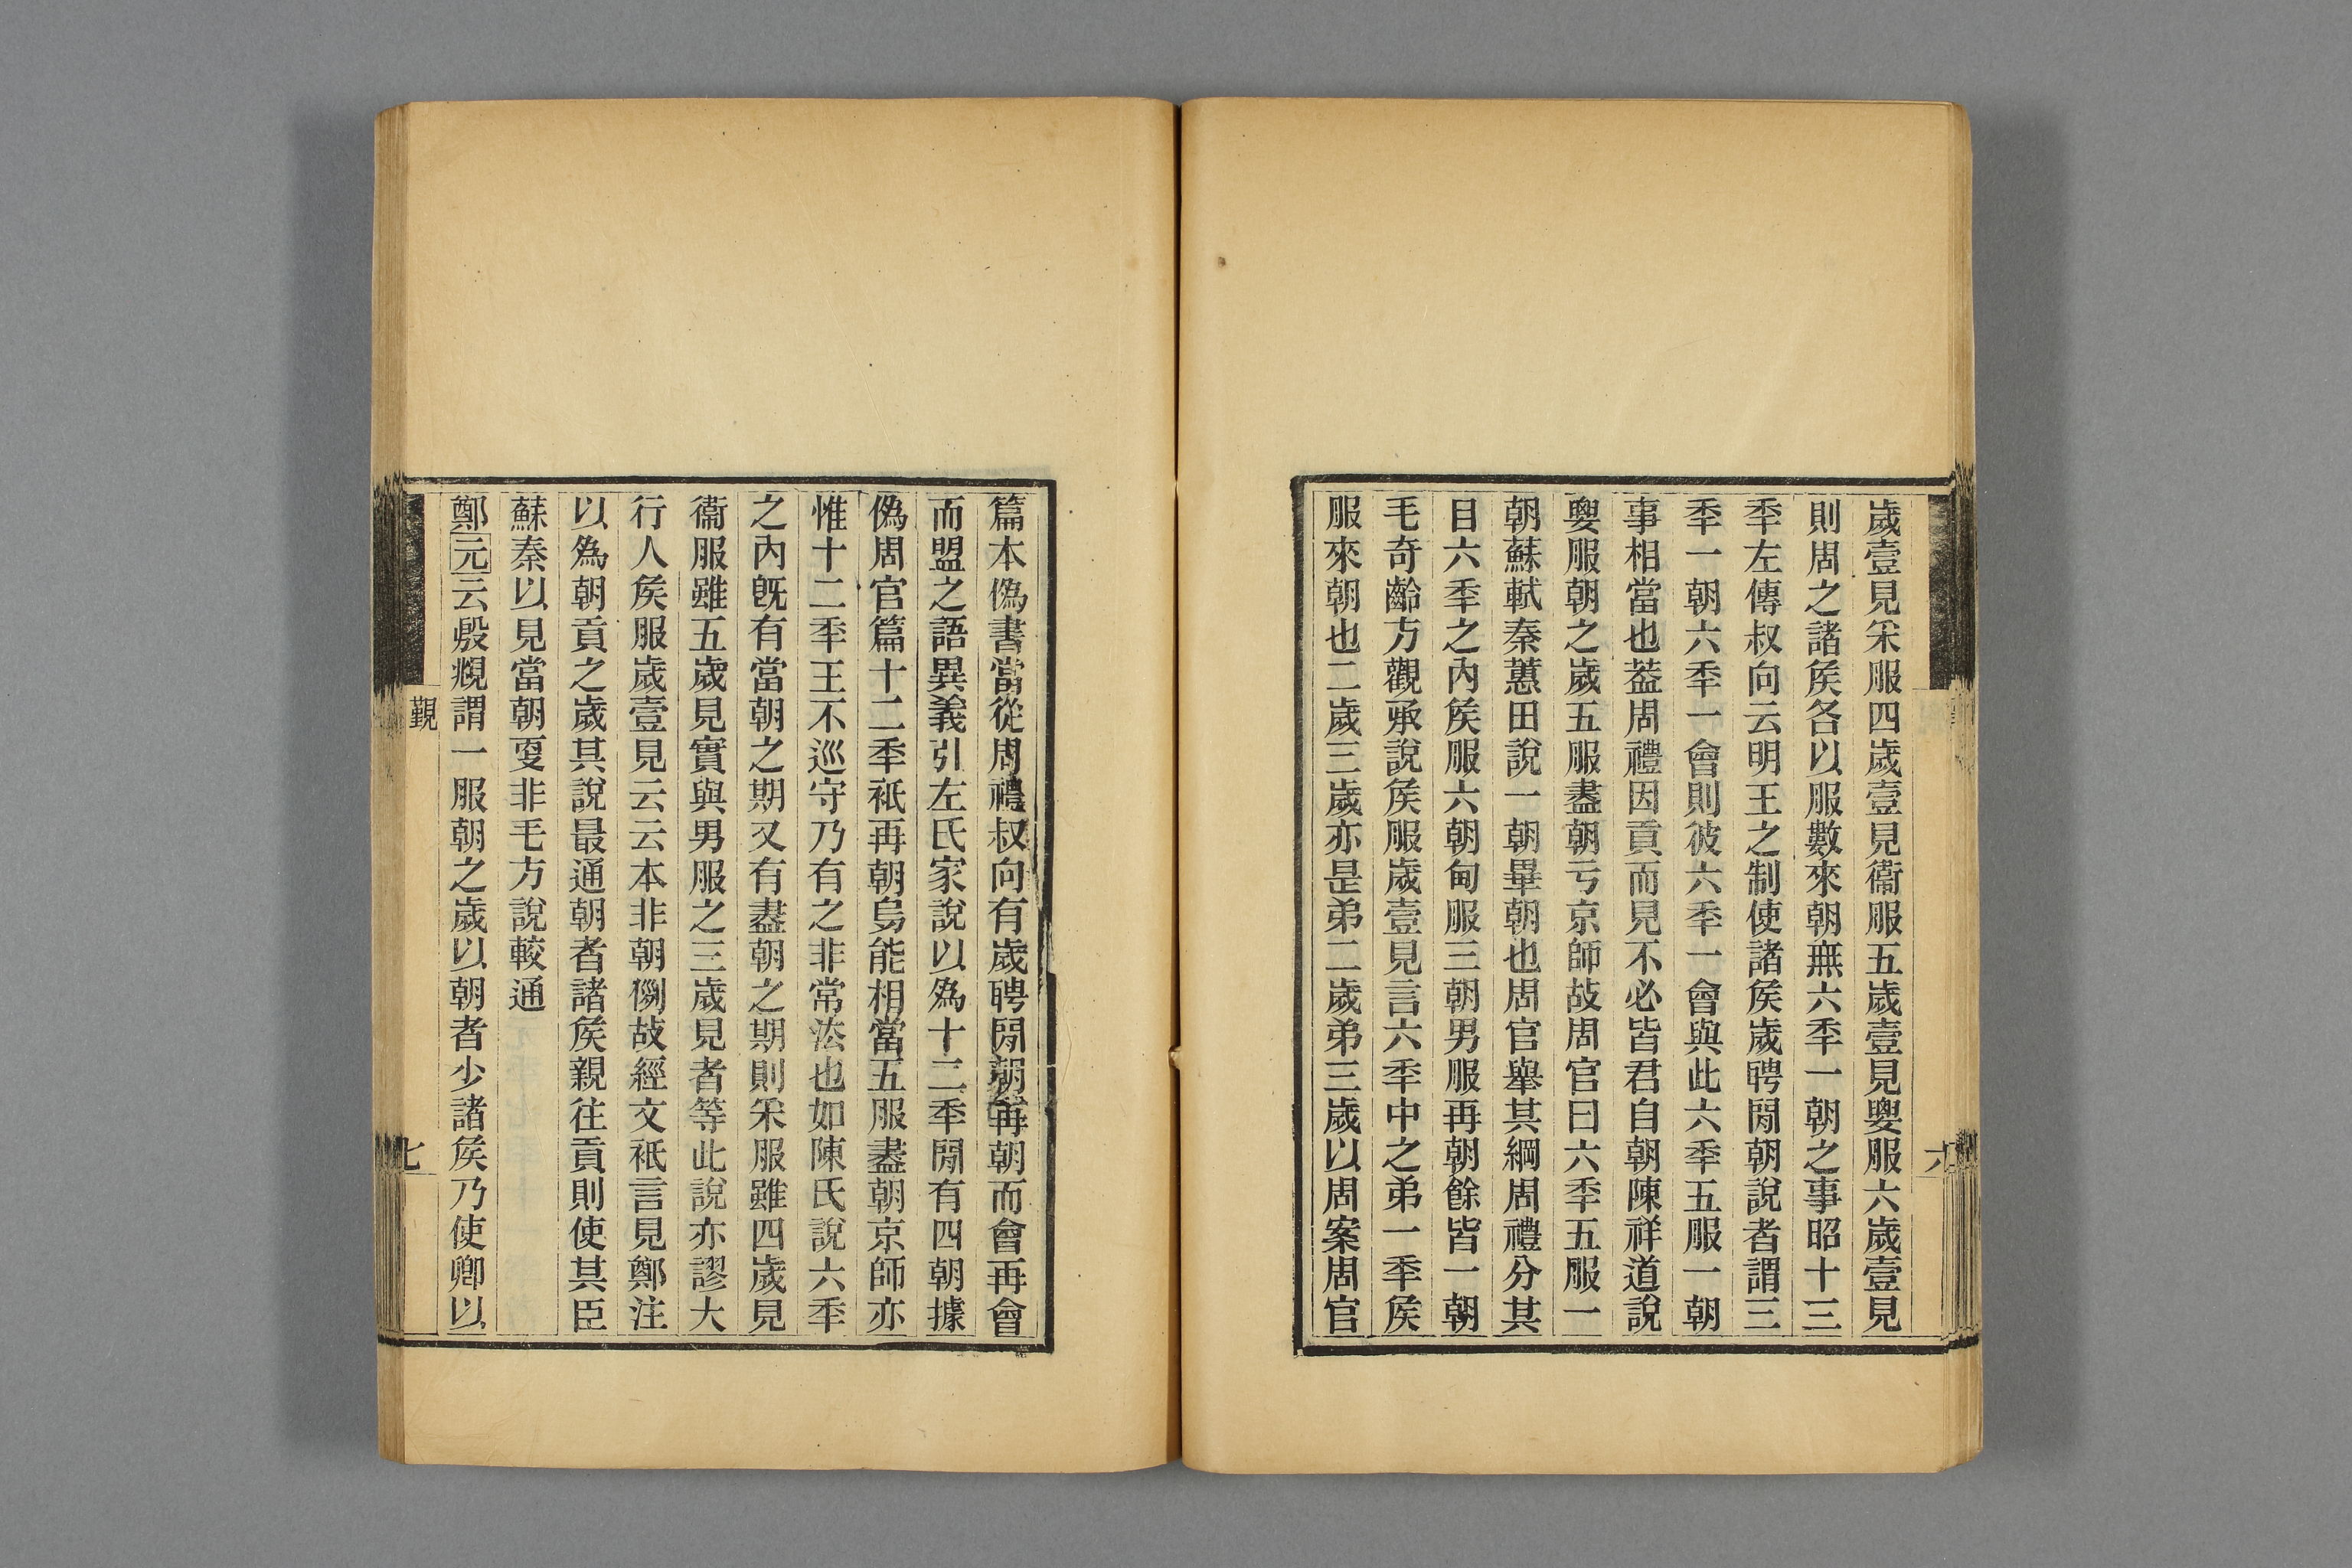 歲壹見采服四歲壹見衞服五歲壹見要服六歲壹見
則周之諸矦各以服數來朝無六季一朝之事昭十三
季左傳叔向云明王之制使諸矦歲聘閒朝說者謂三
季一朝六季一會則彼六季一會與此六季五服一朝
事相當也葢周禮因貢而見不必皆君自朝陳祥道說
要服朝之歲五服盡朝亏京師故周官曰六季五服一
朝蘇軾秦蕙田說一朝畢朝也周官舉其綱周禮分其
目六季之內矦服六朝甸服三朝男服再朝餘皆一朝
毛奇齡方觀承說矦服歲壹見言六季中之弟一季矦
服來朝也二歲三歲亦是弟二歲弟三歲以周案周官
六
篇本僞書當從周禮叔向有歲聘閒朝再朝而會再會
而盟之語異義引左氏家說以爲十二季閒有四朝據
僞周官篇十二季祇再朝烏能相當五服盡朝京師亦
惟十二季王不巡守乃有之非常法也如陳氏說六季
之內旣有當朝之期又有盡朝之期則采服雖四歲見
衞服雖五歲見實與男服之三歲見者等此說亦謬大
行人矦服歲壹見云云本非朝例故經文祇言見鄭注
以爲朝貢之歲其說最通朝者諸矦親往貢則使其臣
蘇秦以見當朝更非毛方說較通
鄭元云殷覜謂一服朝之歲以朝者少諸矦乃使卿以
覲
七